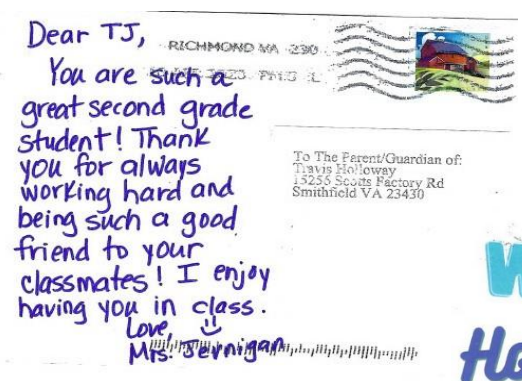 Dear TJ,
You are such a
great second grade
student! Thank
you for always
working hard and
being such a good
friend to your
classmates! I enjoy
having you in class.
Love,
Mrs. Jernigan
RICHMOND VA 230
To The Parent/Guardian of:
Travis Holloway
15255 Scotts Factory Rd
Smithfield VA 23430